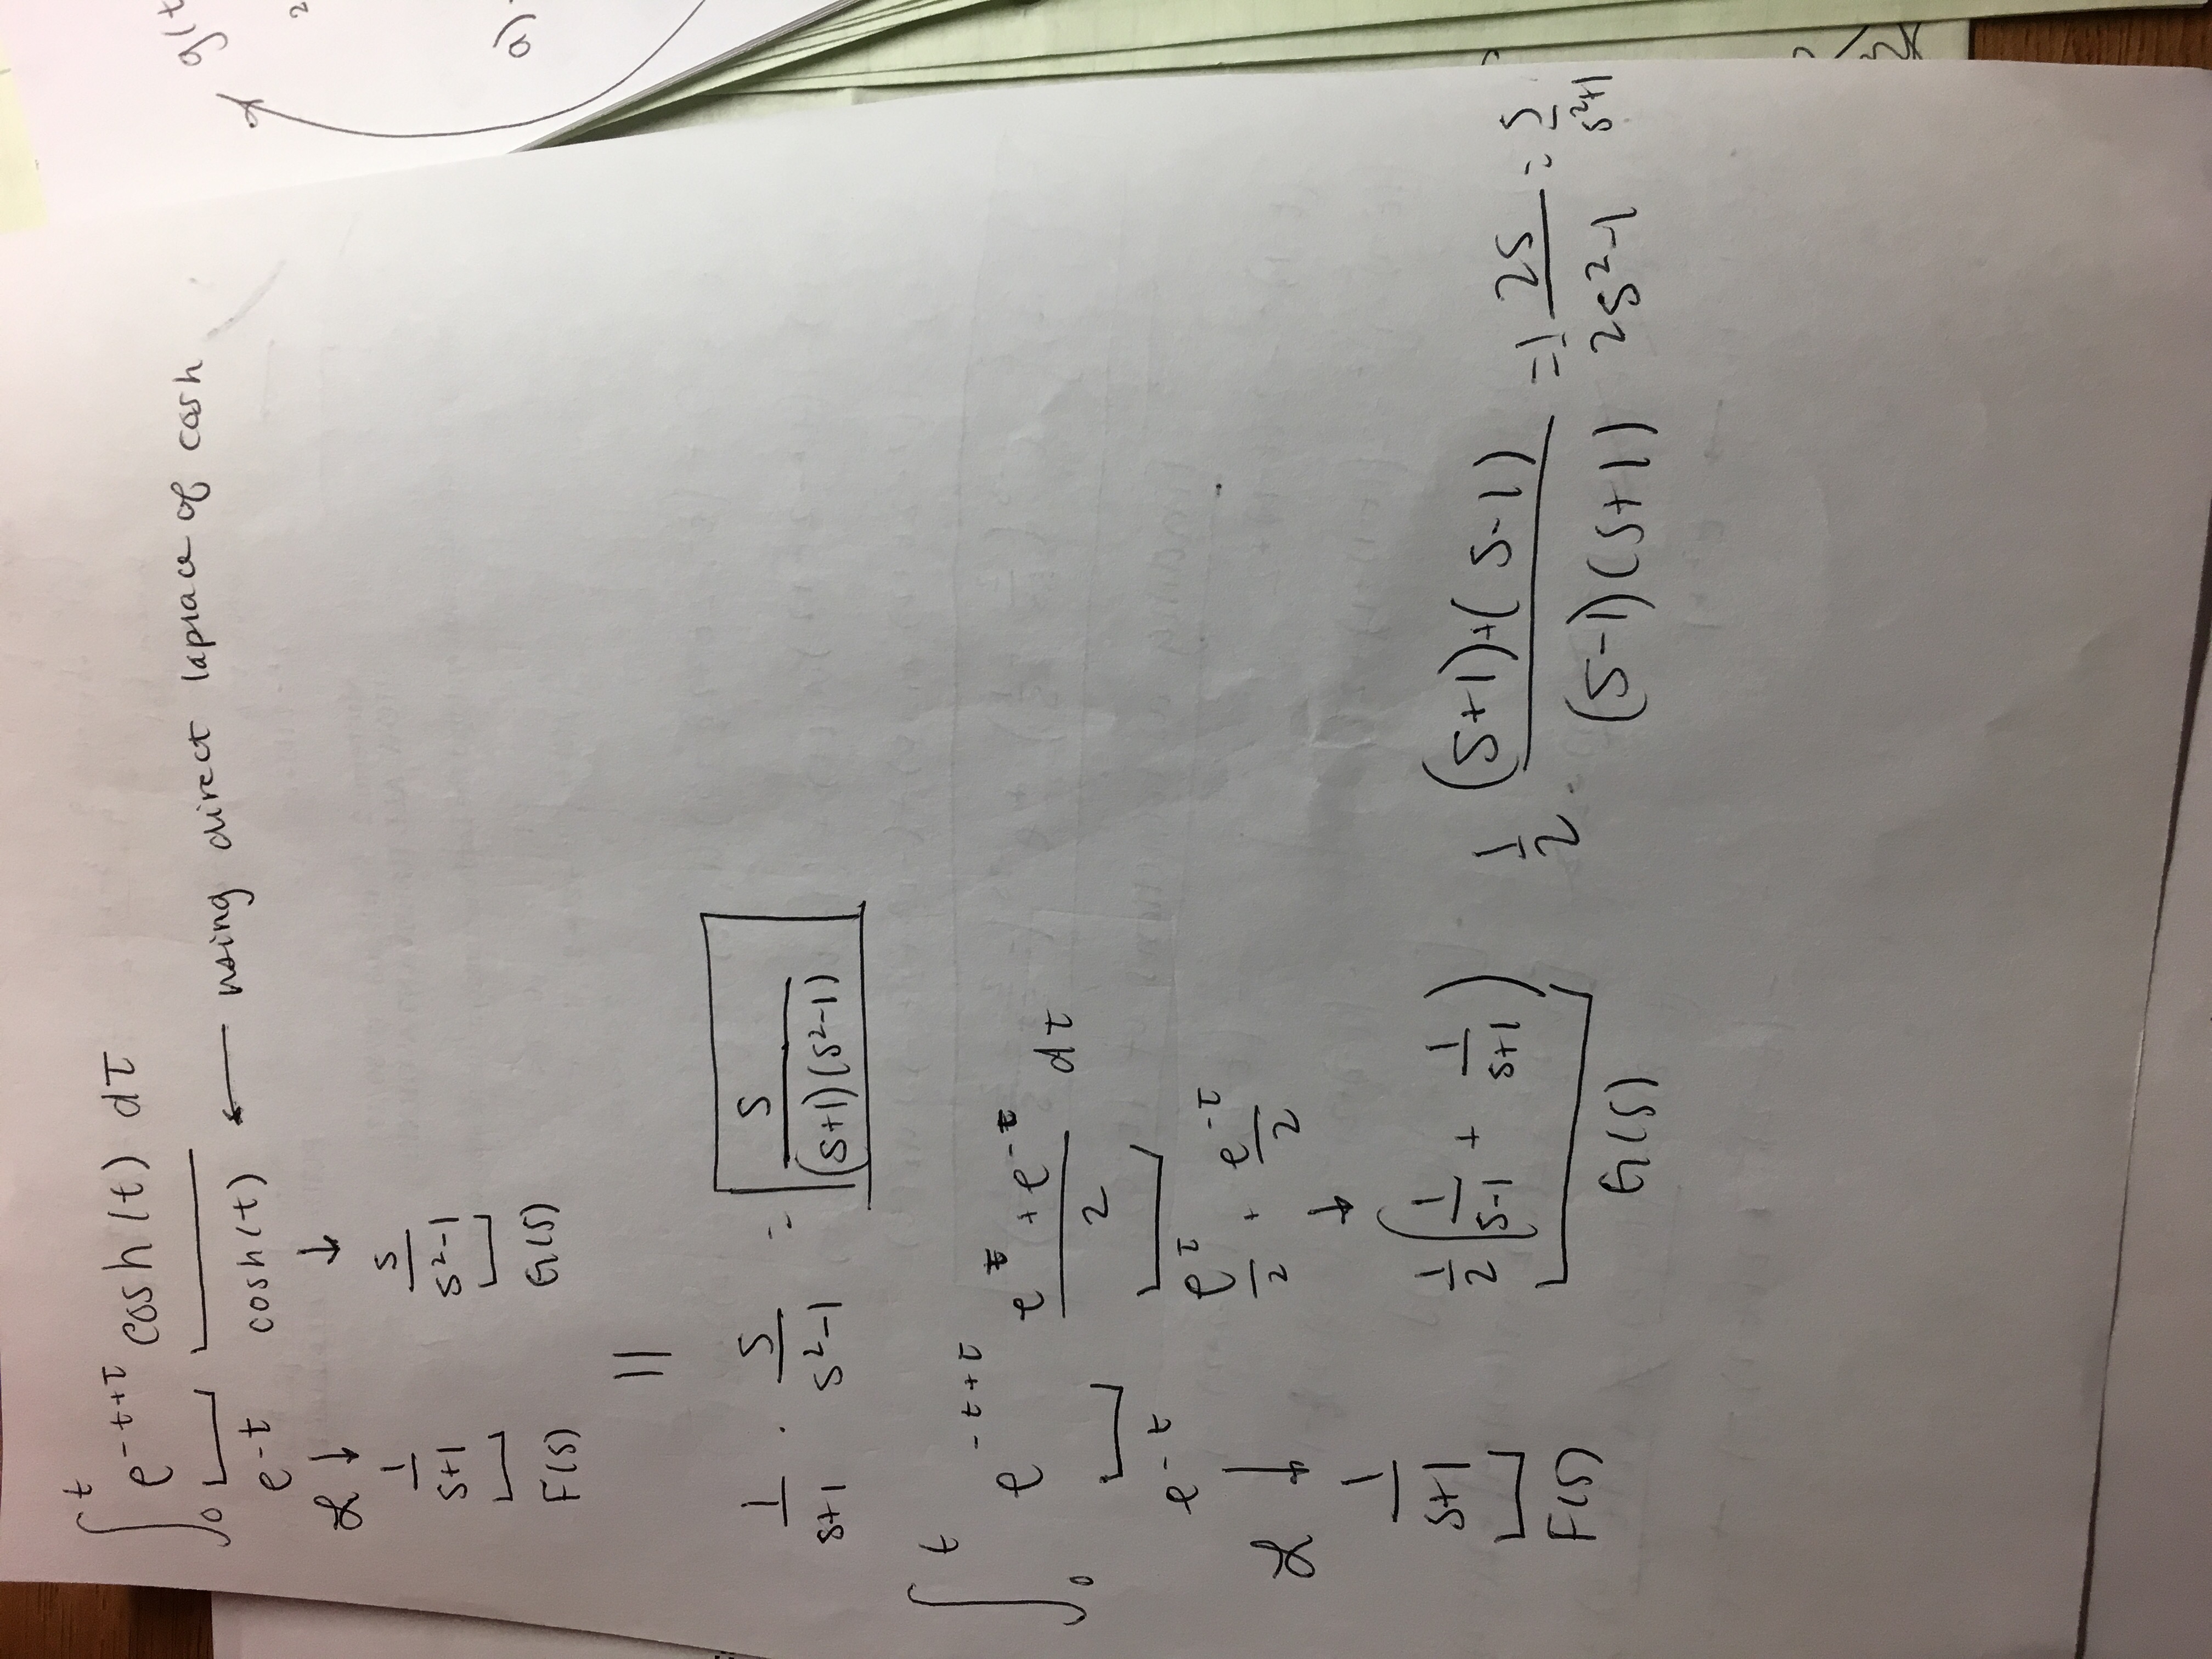 ∫₀ᵗ e^(-t+τ) cosh(t) dτ
e^-t cosh(t) ← using direct laplace of cosh
ℒ ↓ ↓
1/(s+1) s/(s²-1)
F(s) G(s)
||
1/(s+1) · s/(s²-1) = s/((s+1)(s²-1))
∫₀ᵗ e^(-t+τ) (e^τ + e^-τ)/2 dτ
e^-t e^τ/2 + e^-τ/2
ℒ ↓ ↓
1/(s+1) 1/2 (1/(s-1) + 1/(s+1)) 1/2 · ((s+1)+(s-1))/((s-1)(s+1)) = 1/2 2s/(s²-1) = s/(s²+1)
F(s) G(s)
g(t
2
a)